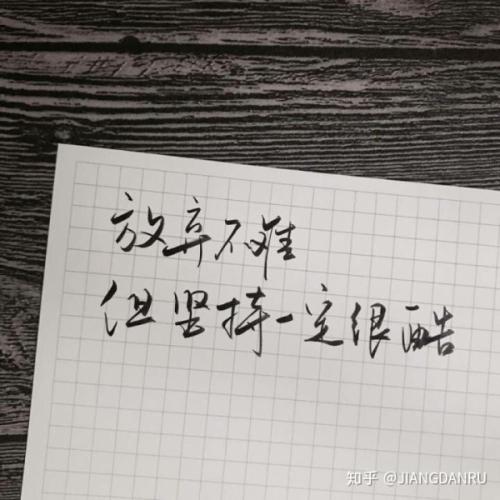 放弃不难
但坚持一定很酷
知乎 @JIANGDANRU